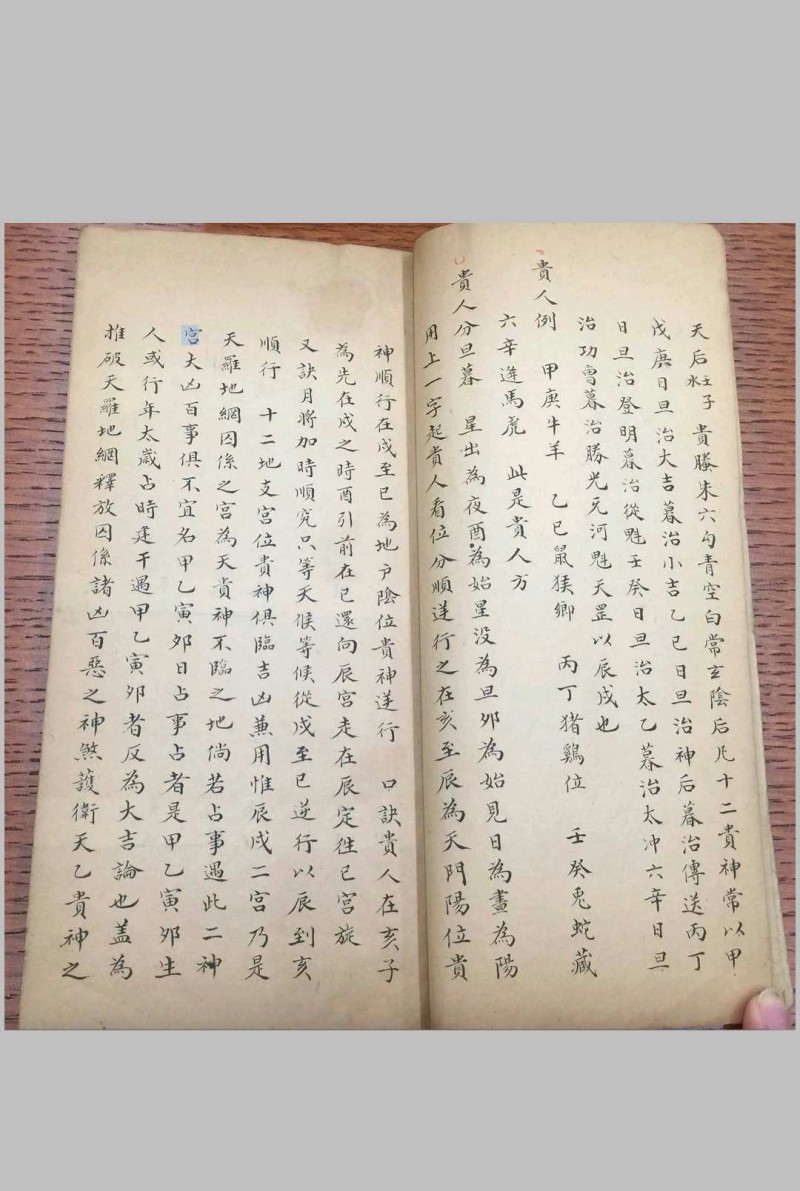 天后水壬子貴螣朱六勾青空白常玄陰后凡十二貴神常以甲
戊庚日旦治大吉暮治小吉乙己日旦治神后暮治傳送丙丁
日旦治登明暮治從魁壬癸日旦治太乙暮治太冲六辛日旦
治功曹暮治勝光元河魁天罡以辰戌也
貴人例 甲庚牛羊 乙己鼠猴鄉 丙丁猪鷄位 壬癸兎蛇藏
六辛逢馬虎 此是貴人方
貴人分旦暮 星出為夜酉為始星没為旦夘為始見日為晝為陽
用上一字起貴人看位分順逆行之在亥至辰為天門陽位貴
神順行在戌至巳為地户陰位貴神逆行 口訣貴人在亥子
為先在戌之時酉引前在巳還向辰宮走在辰定徃巳宮旋
又訣月將加時順究只等天候等候從戌至巳逆行以辰到亥
順行 十二地支宮位貴神俱臨吉凶兼用惟辰戌二宮乃是
天羅地網囚係之宮為天貴神不臨之地倘若占事遇此二神
宮大凶百事俱不宜名甲乙寅夘日占事占者是甲乙寅夘生
人或行年太歲占時建干遇甲乙寅夘者反為大吉論也盖為
推破天羅地網釋放囚係諸凶百惡之神煞護衛天乙貴神之